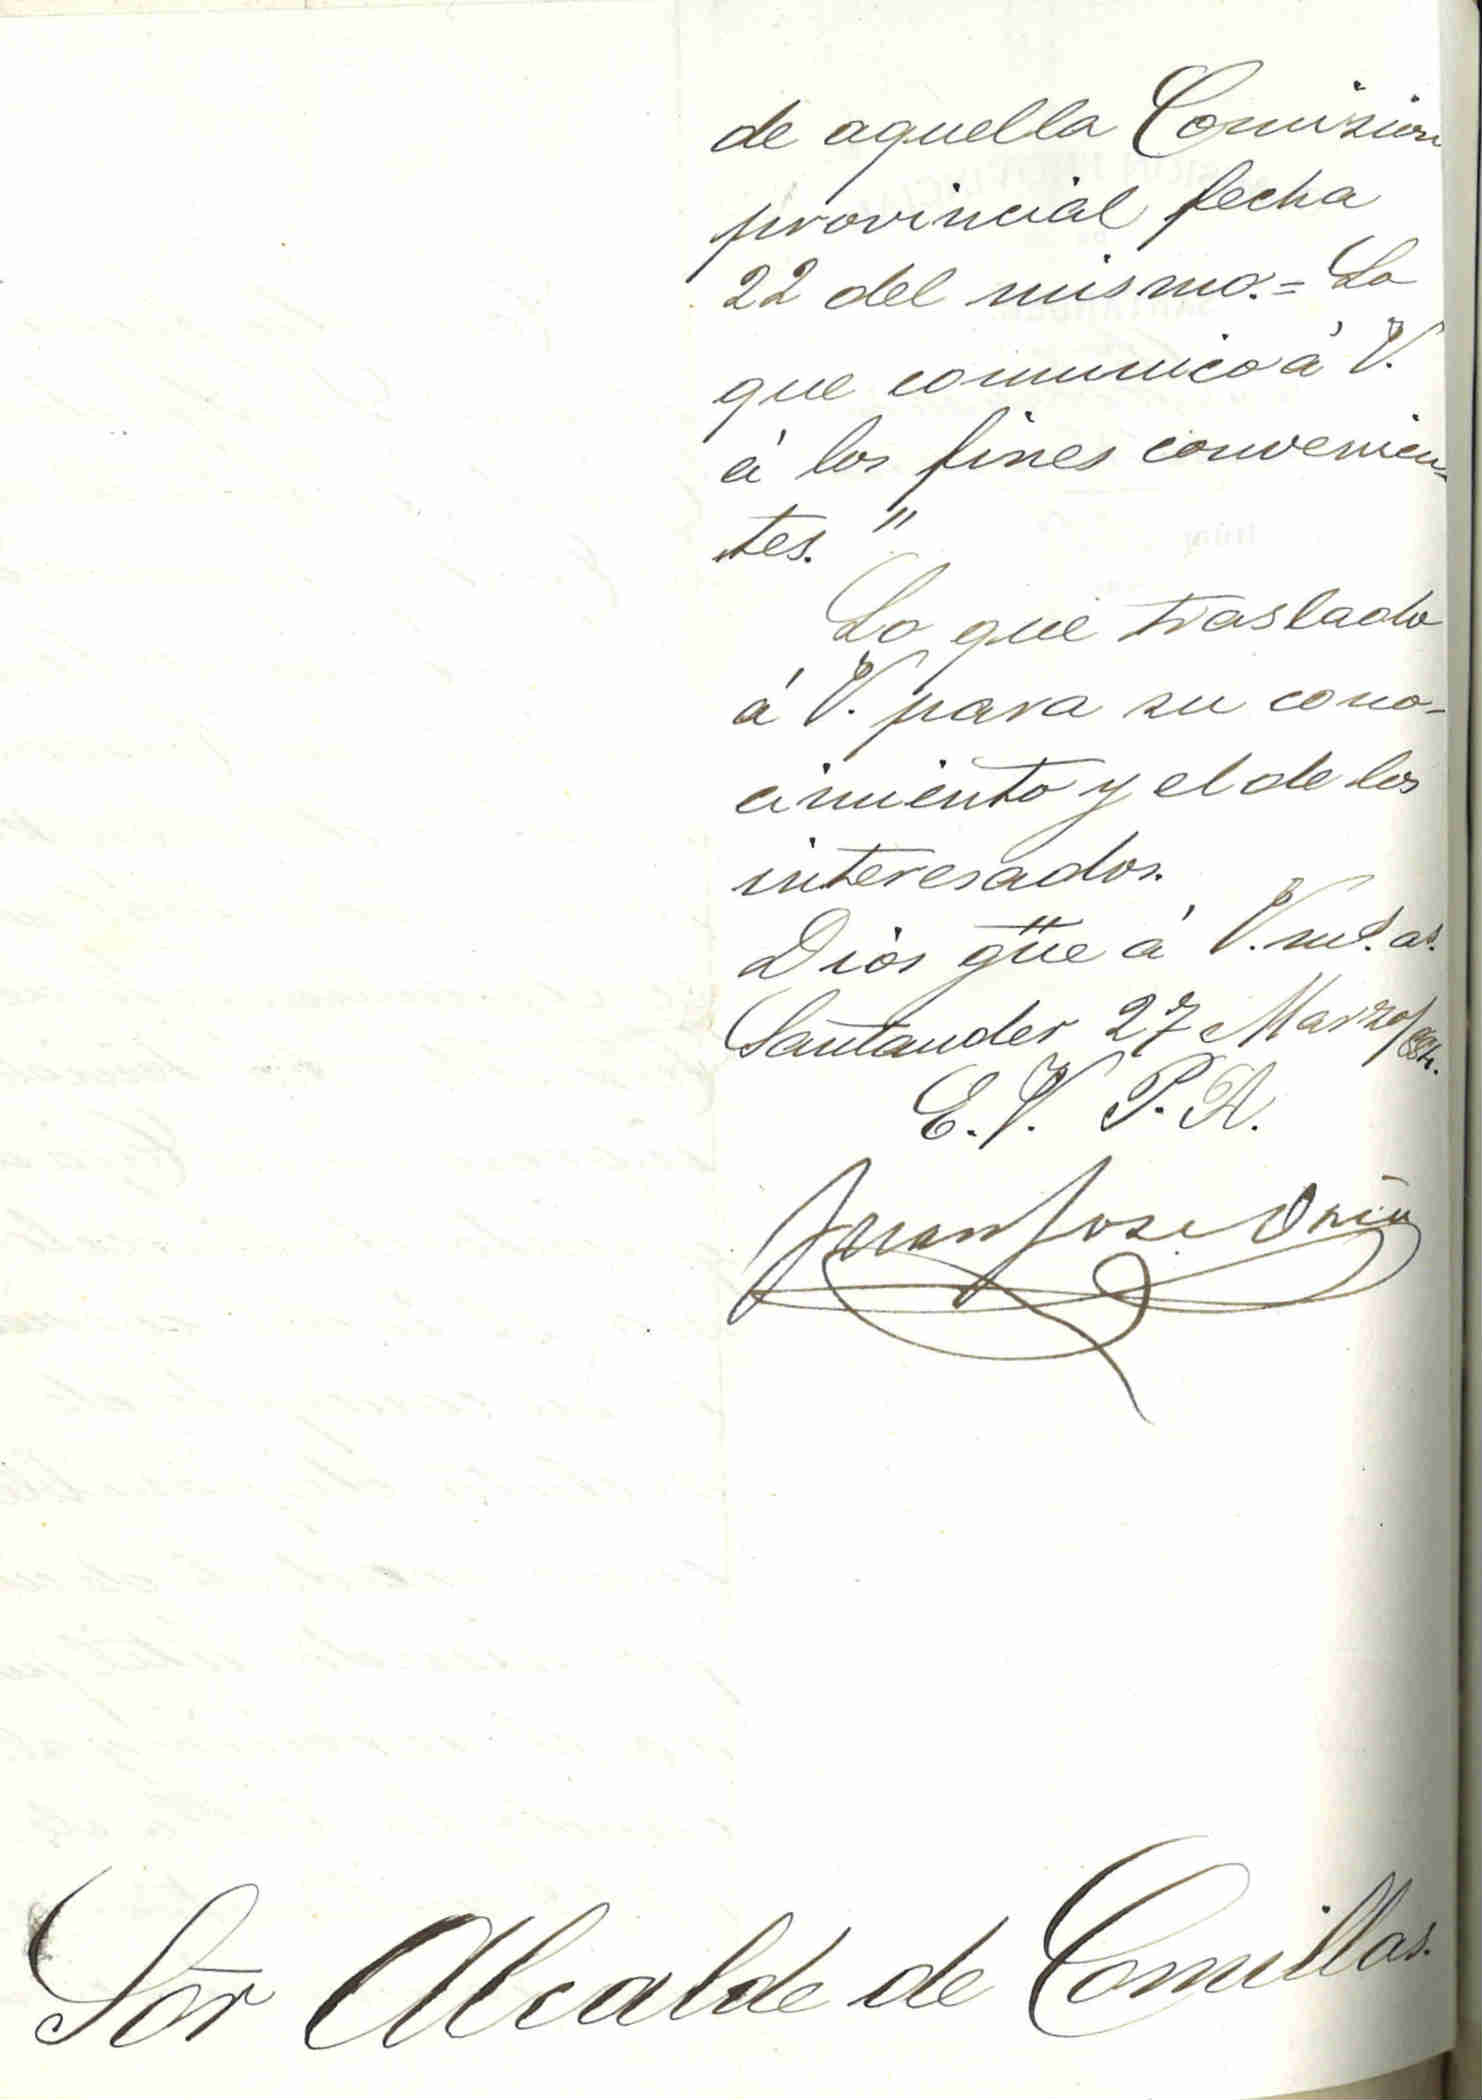 de aquella Comision
provincial fecha
22 del mismo.= Lo
que comunico á V.
á los fines convenien-
tes."
Lo que traslado
á V. para su cono-
cimiento y el de los
interesados.
Dios güe á V. ms. as.
Santander 27 Marzo/884.
E. V. P. A.
Juan José Oria
Sor Alcalde de Comillas.